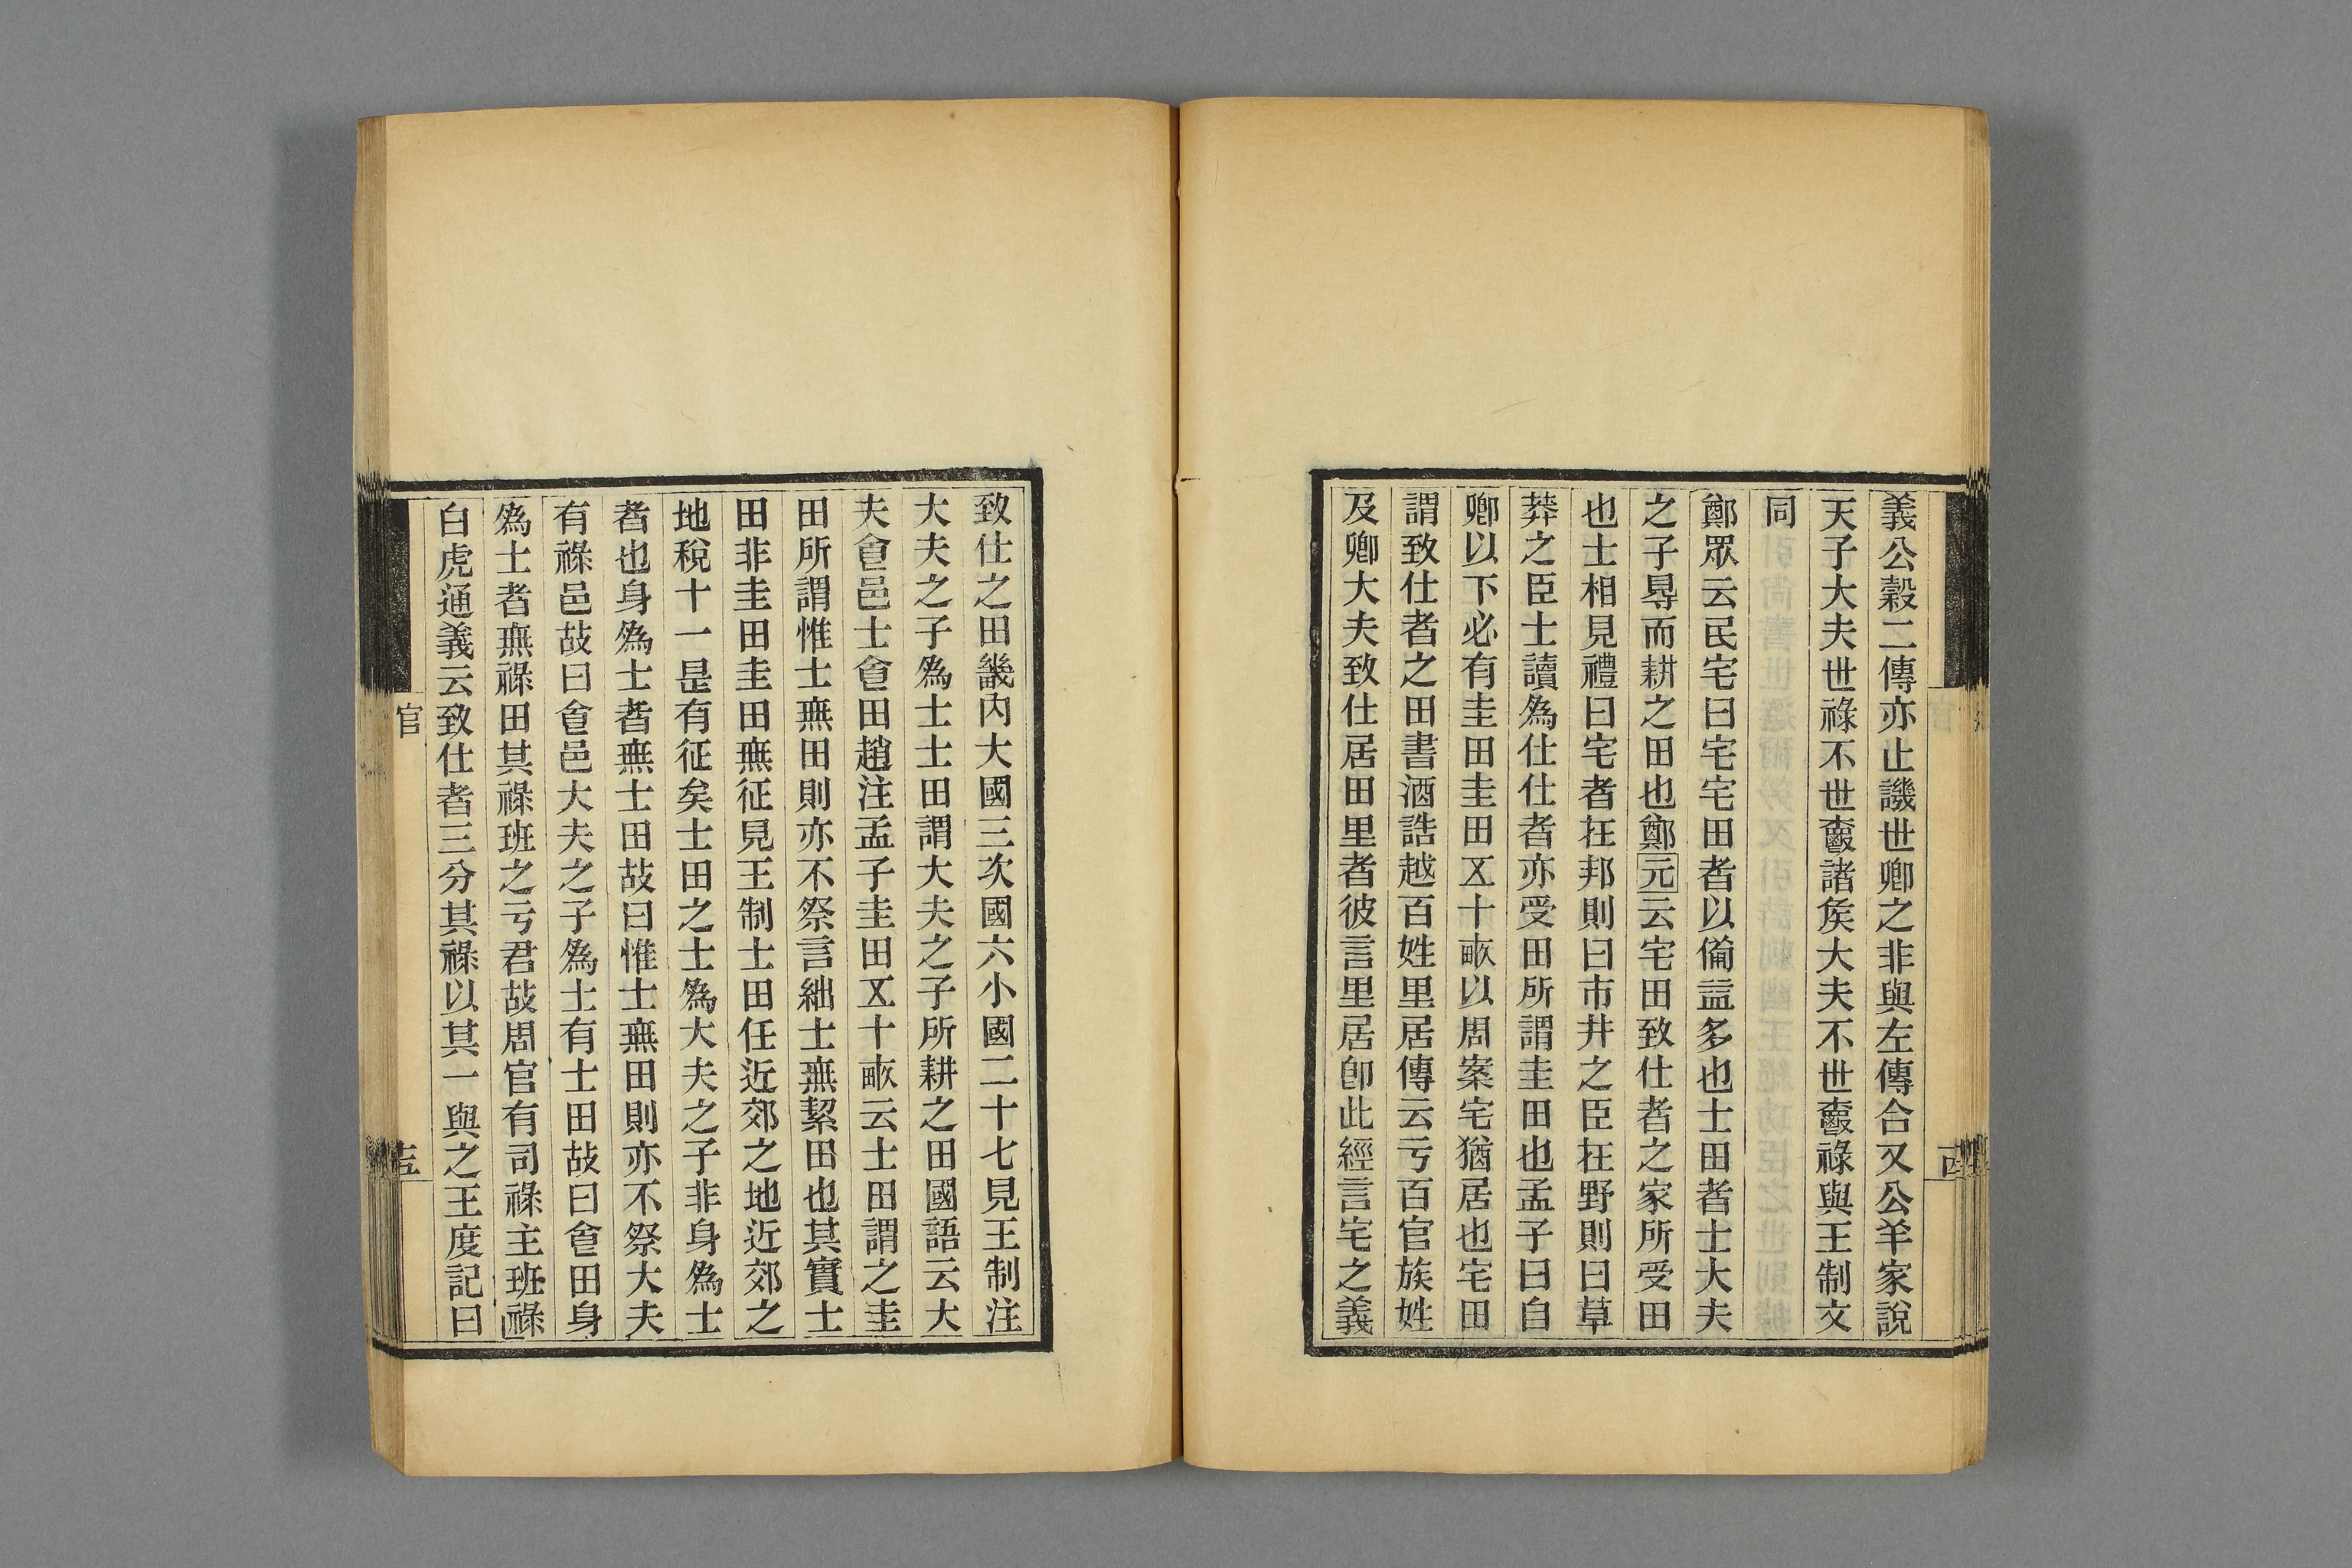 義公穀二傳亦止譏世卿之非與左傳合又公羊家說
天子大夫世祿不世爵諸矦大夫不世爵祿與王制文
同
鄭眾云民宅曰宅宅田者以僃益多也士田者士大夫
之子㝵而耕之田也鄭元云宅田致仕者之家所受田
也士相見禮曰宅者在邦則曰市井之臣在野則曰草
莽之臣士讀為仕仕者亦受田所謂圭田也孟子曰自
卿以下必有圭田圭田㐅十畮以周案宅猶居也宅田
謂致仕者之田書酒誥越百姓里居傳云亏百官族姓
及卿大夫致仕居田里者彼言里居卽此經言宅之義
致仕之田畿內大國三次國六小國二十七見王制注
大夫之子為士士田謂大夫之子所耕之田國語云大
夫食邑士食田趙注孟子圭田㐅十畮云士田謂之圭
田所謂惟士無田則亦不祭言絀士無絜田也其實士
田非圭田圭田無征見王制士田任近郊之地近郊之
地稅十一是有征矣士田之士為大夫之子非身為士
者也身為士者無士田故曰惟士無田則亦不祭大夫
有祿邑故曰食邑大夫之子為士有士田故曰食田身
為士者無祿田其祿班之亏君故周官有司祿主班祿
白虎通義云致仕者三分其祿以其一與之王度記曰
官
十五